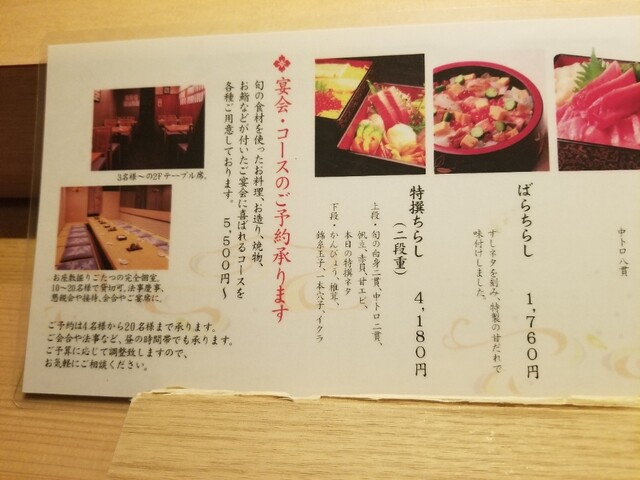 中トロ八貫
ばらちらし　1,760円
すしネタを刻み、特製の甘だれで
味付けしました。
特撰ちらし　4,180円
（二段重）
上段・旬の白身二貫、中トロ二貫、
帆立、赤貝、甘エビ、
本日の特撰ネタ
下段・かんぴょう、椎茸、
錦糸玉子、一本穴子、イクラ
宴会・コースのご予約承ります
旬の食材を使ったお料理、お造り、焼物、
お鮨などが付いたご宴会に喜ばれるコースを
各種ご用意しております。　5,500円〜
3名様〜の2Fテーブル席。
お座敷掘りごたつの完全個室。
10〜20名様で貸切可。法事慶事、
懇親会や接待、会合やご宴席に。
ご予約は4名様から20名様まで承ります。
ご会合や法事など、昼の時間帯でも承ります。
ご予算に応じて調整致しますので、
お気軽にご相談ください。